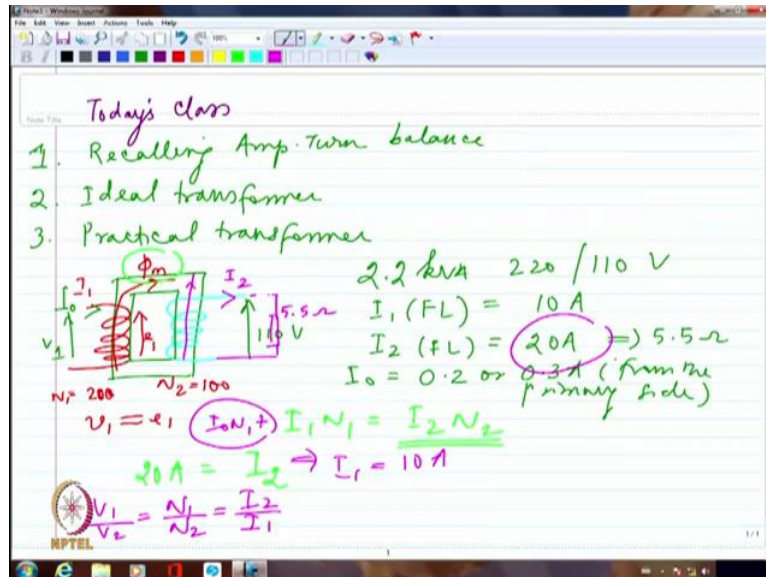 Note1 - Windows Journal
File Edit View Insert Actions Tools Help
100%
B I
Note Title
Today's class
1. Recalling Amp. Turn balance
2. Ideal transformer
3. Practical transformer
Φm
I1
I0
I2
V1
e1
110 V
5.5 Ω
N1 = 200
N2 = 100
2.2 kVA 220 / 110 V
I1 (FL) = 10 A
I2 (FL) = 20A ⇒ 5.5 Ω
I0 = 0.2 or 0.3A (from the
primary side)
v1 = e1 I0N1 + I1 N1 = I2 N2
20A = I2 ⇒ I1 = 10 A
V1/V2 = N1/N2 = I2/I1
NPTEL
1/1
1